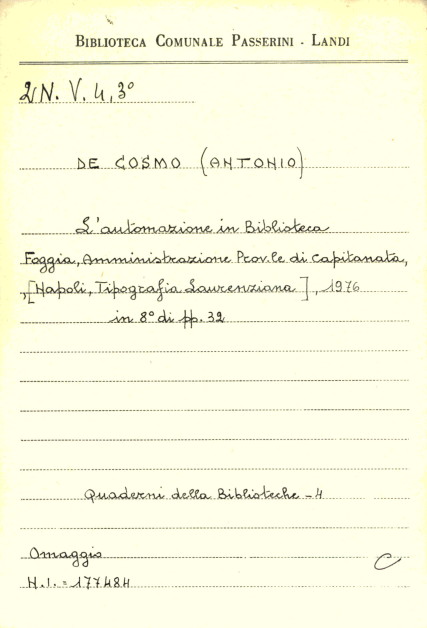 BIBLIOTECA COMUNALE PASSERINI - LANDI
2N. V. 4, 3°
DE COSMO (ANTONIO)
L'automazione in Biblioteca
Foggia, Amministrazione Prov.le di Capitanata,
,[Napoli, Tipografia Laurenziana], 1976
in 8° di pp. 32
Quaderni della Biblioteche - 4
Omaggio
C
N.I. = 177484